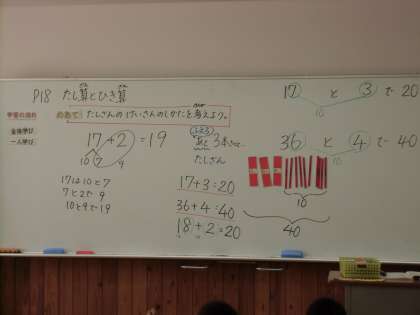 P18 たし算とひき算
学習の流れ
全体学び
一人学び
めあて たしざんの けいさんのしかたを考えよう。
17+2=19
10 7 9
17は10と7
7と2で9
10と9で19
あと3本で
たしざん
17+3=20
36+4=40
18+2=20
17と3で20
10
36と4で40
10
10
40